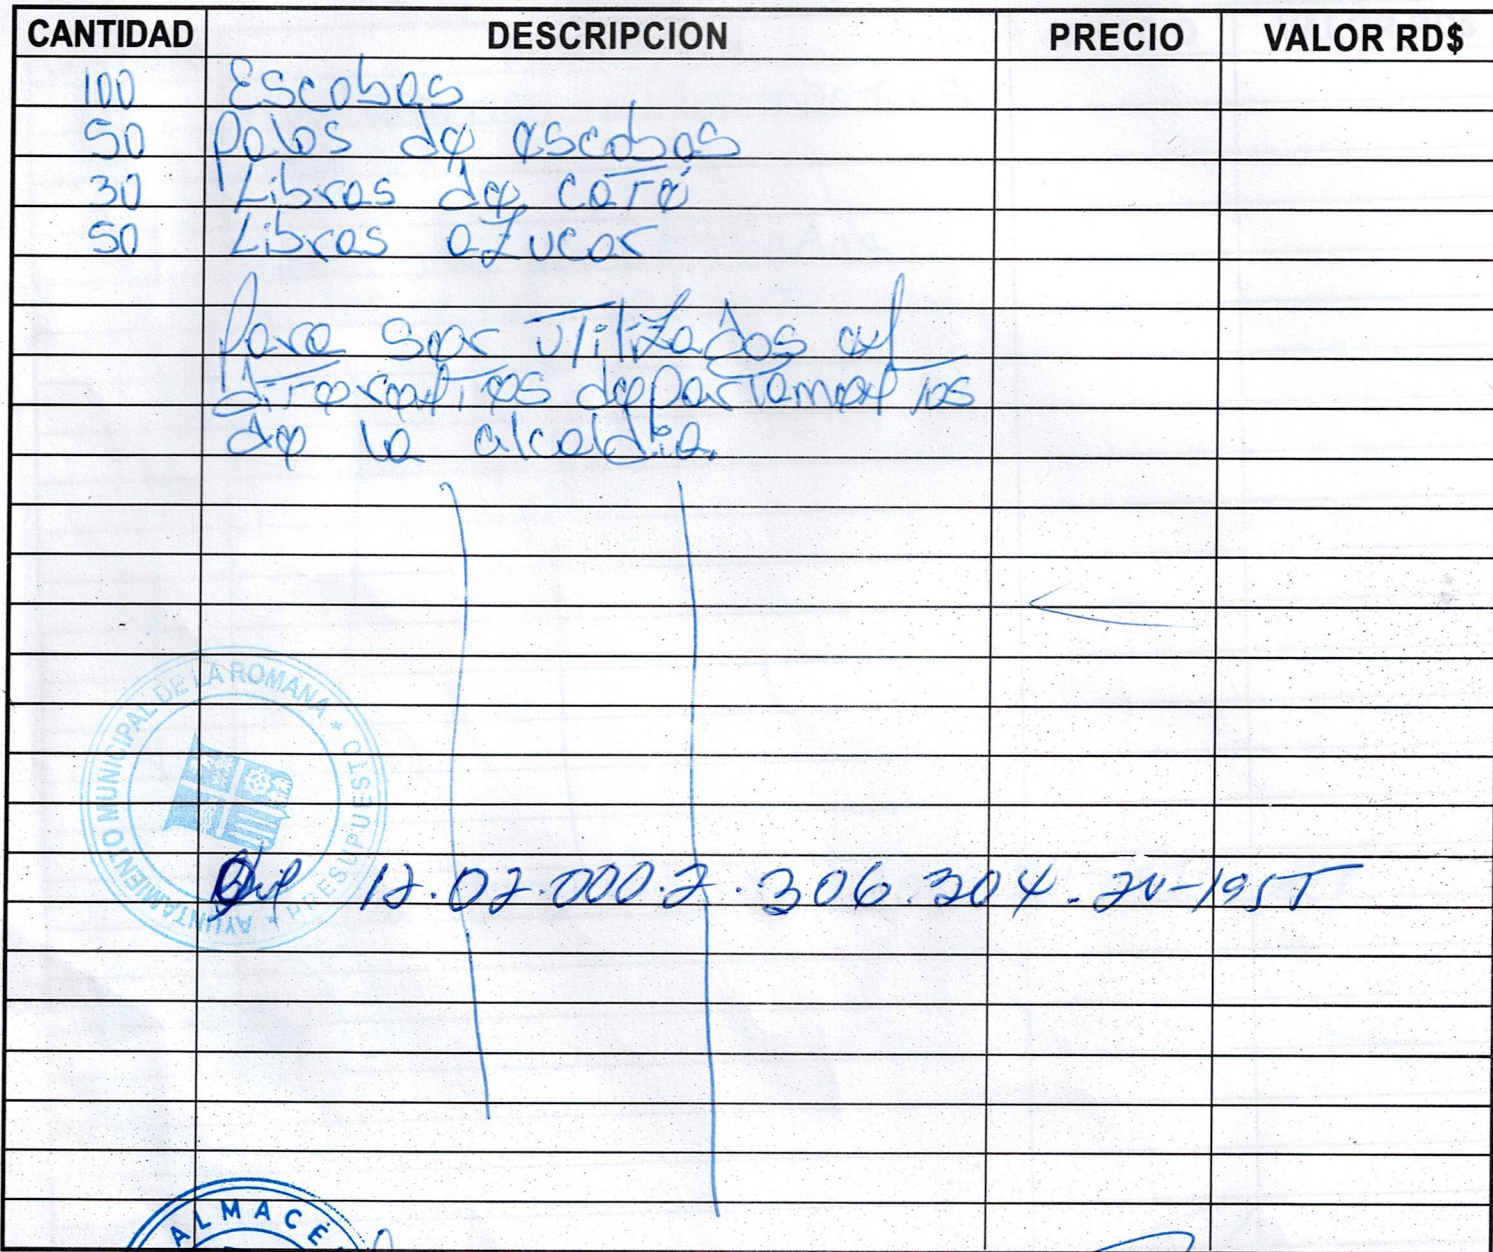 CANTIDAD DESCRIPCION PRECIO VALOR RD$
100 Escobas
50 palos de escobas
30 Libras de café
50 Libras azucar
para ser utilizados en
diferentes departamentos
de la alcaldia.
AYUNTAMIENTO MUNICIPAL DE LA ROMANA * PRESUPUESTO *
12.02.000.2.306.304.
ALMACÉ